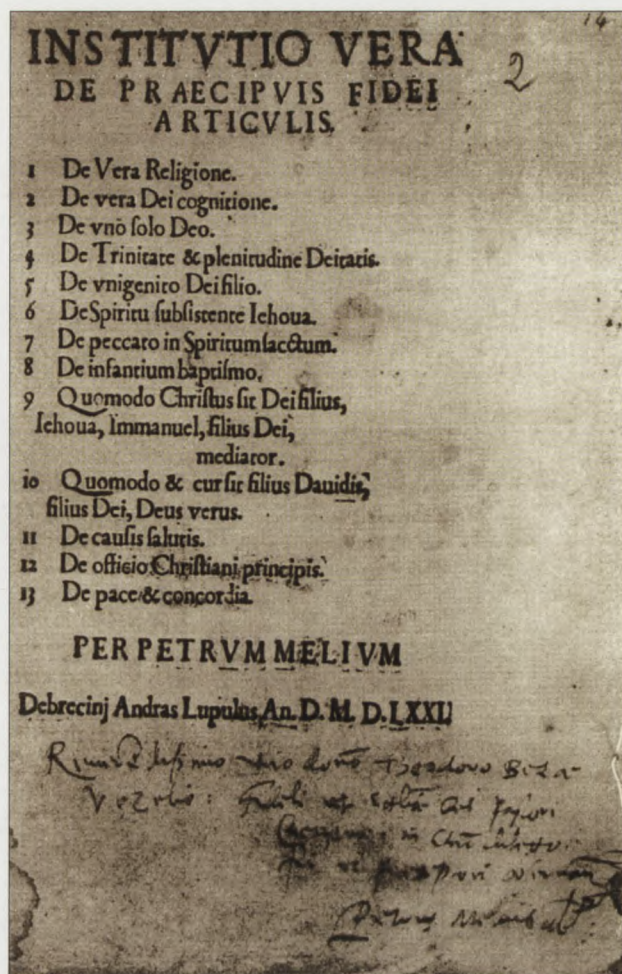 14
2
INSTITVTIO VERA
DE PRAECIPVIS FIDEI
ARTICVLIS.
1 De Vera Religione.
2 De vera Dei cognitione.
3 De vno ſolo Deo.
4 De Trinitate & plenitudine Deitatis.
5 De vnigenito Dei filio.
6 De Spiritu ſubſiſtente Iehoua.
7 De peccato in Spiritum ſacctum.
8 De infantium baptiſmo,
9 Quomodo Chriſtus ſit Dei filius,
Iehoua, Immanuel, filius Dei,
mediator.
10 Quomodo & cur ſit filius Dauidis,
filius Dei, Deus verus.
11 De cauſis ſalutis.
12 De officio Chriſtiani principis.
13 De pace & concordia.
PER PETRVM MELIVM
Debrecinj Andras Lupulus, An. D. M. D. LXXI.
Theodoro Beza
Vezelio:
Petrus